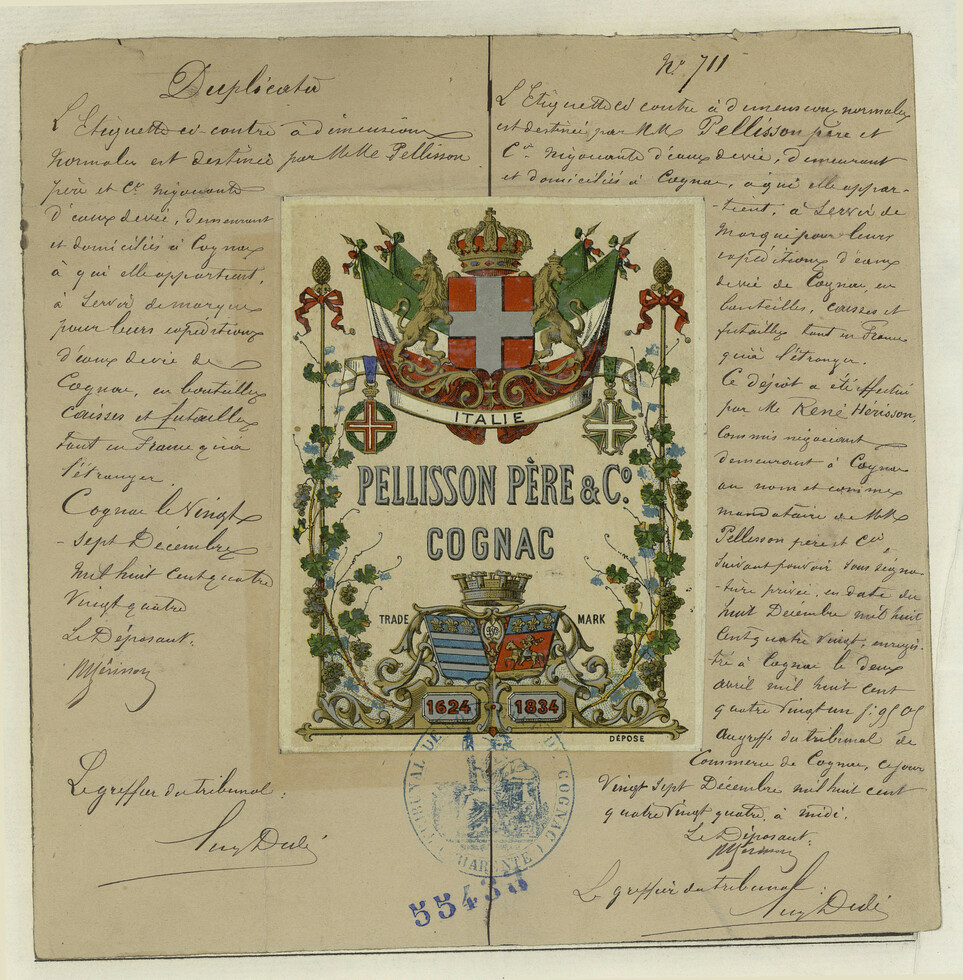 Duplicata
L'Etiquette ci-contre à dimensions
normales est destinée par MM Pellisson
père et Cie négociants
d'eaux de vie, demeurant
et domiciliés à Cognac
à qui elle appartient,
à servir de marque
pour leurs expéditions
d'eaux de vie de
Cognac, en bouteilles
caisses et futailles
tant en France qu'à
l'étranger.
Cognac le Vingt
-sept Décembre
mil huit cent quatre
vingt quatre
Le Déposant.
Le greffier du tribunal:
No 711
L'Etiquette ci contre à dimensions normales
est destinée par MM Pellisson père et
Cie négociants d'eaux de vie, demeurant
et domiciliés à Cognac, à qui elle appar-
-tient, à servir de
marque pour leurs
expéditions d'eaux
de vie de Cognac, en
bouteilles, caisses et
futailles tant en France
qu'à l'étranger.
Ce dépôt a été effectué
par Mr René Hérisson,
commis négociant
demeurant à Cognac
au nom et comme
mandataire de MM
Pellisson père et Cie,
suivant pouvoir sous signa-
ture privée, en date du
huit Décembre mil huit
cent quatre vingt, enregis-
tré à Cognac le deux
avril mil huit cent
quatre vingt un
au greffe du tribunal de
Commerce de Cognac, ce jour
Vingt sept Décembre mil huit cent
quatre vingt quatre, à midi.
Le Déposant,
Le greffier du tribunal:
ITALIE
PELLISSON PÈRE & Co.
COGNAC
TRADE MARK
1624 1834
DÉPOSÉ
TRIBUNAL DE DE COGNAC
(CHARENTE)
55433